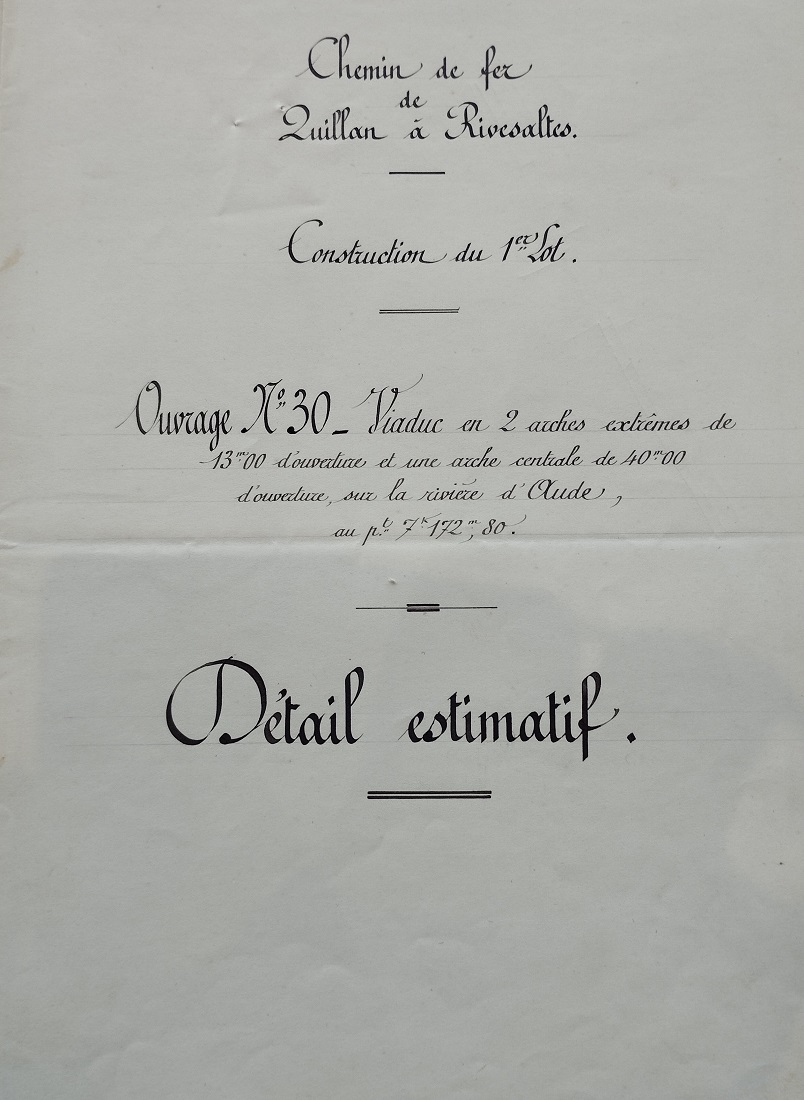 Chemin de fer
de
Quillan à Rivesaltes.
Construction du 1er Lot.
Ouvrage No 30 _ Viaduc en 2 arches extrêmes de
13m00 d'ouverture et une arche centrale de 40m00
d'ouverture, sur la rivière d'Aude,
au pt 7k172m,80.
Détail estimatif.